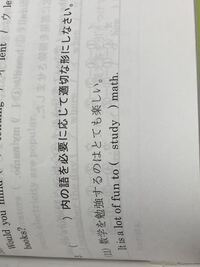 lent ) ウ le
Would you mind (
books?
3 ( )内の語を必要に応じて適切な形にしなさい。
(1) 数学を勉強するのはとても楽しい。
It is a lot of fun to ( study ) math.